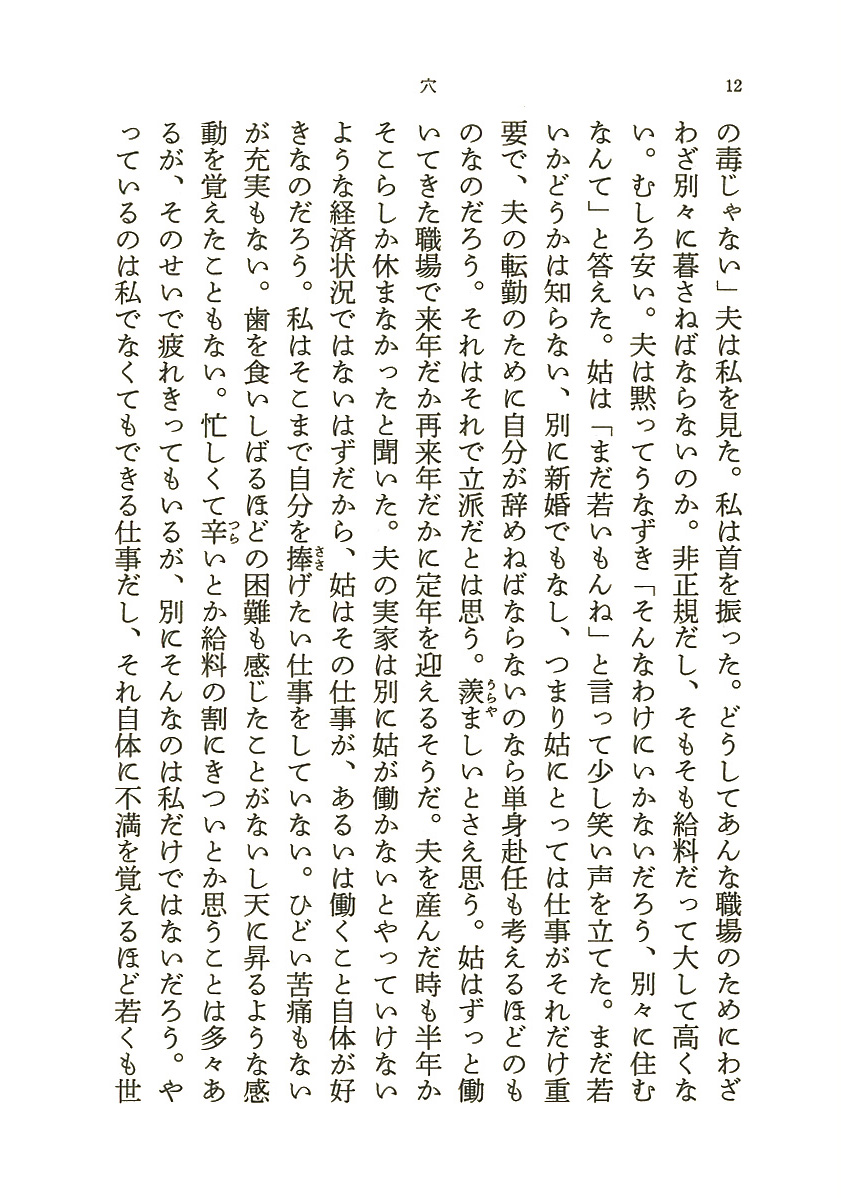 12
穴
の毒じゃない」夫は私を見た。私は首を振った。どうしてあんな職場のためにわざ
わざ別々に暮さねばならないのか。非正規だし、そもそも給料だって大して高くな
い。むしろ安い。夫は黙ってうなずき「そんなわけにいかないだろう、別々に住む
なんて」と答えた。姑は「まだ若いもんね」と言って少し笑い声を立てた。まだ若
いかどうかは知らない、別に新婚でもなし、つまり姑にとっては仕事がそれだけ重
要で、夫の転勤のために自分が辞めねばならないのなら単身赴任も考えるほどのも
のなのだろう。それはそれで立派だとは思う。羨ましいとさえ思う。姑はずっと働
いてきた職場で来年だか再来年だかに定年を迎えるそうだ。夫を産んだ時も半年か
そこらしか休まなかったと聞いた。夫の実家は別に姑が働かないとやっていけない
ような経済状況ではないはずだから、姑はその仕事が、あるいは働くこと自体が好
きなのだろう。私はそこまで自分を捧げたい仕事をしていない。ひどい苦痛もない
が充実もない。歯を食いしばるほどの困難も感じたことがないし天に昇るような感
動を覚えたこともない。忙しくて辛いとか給料の割にきついとか思うことは多々あ
るが、そのせいで疲れきってもいるが、別にそんなのは私だけではないだろう。や
っているのは私でなくてもできる仕事だし、それ自体に不満を覚えるほど若くも世